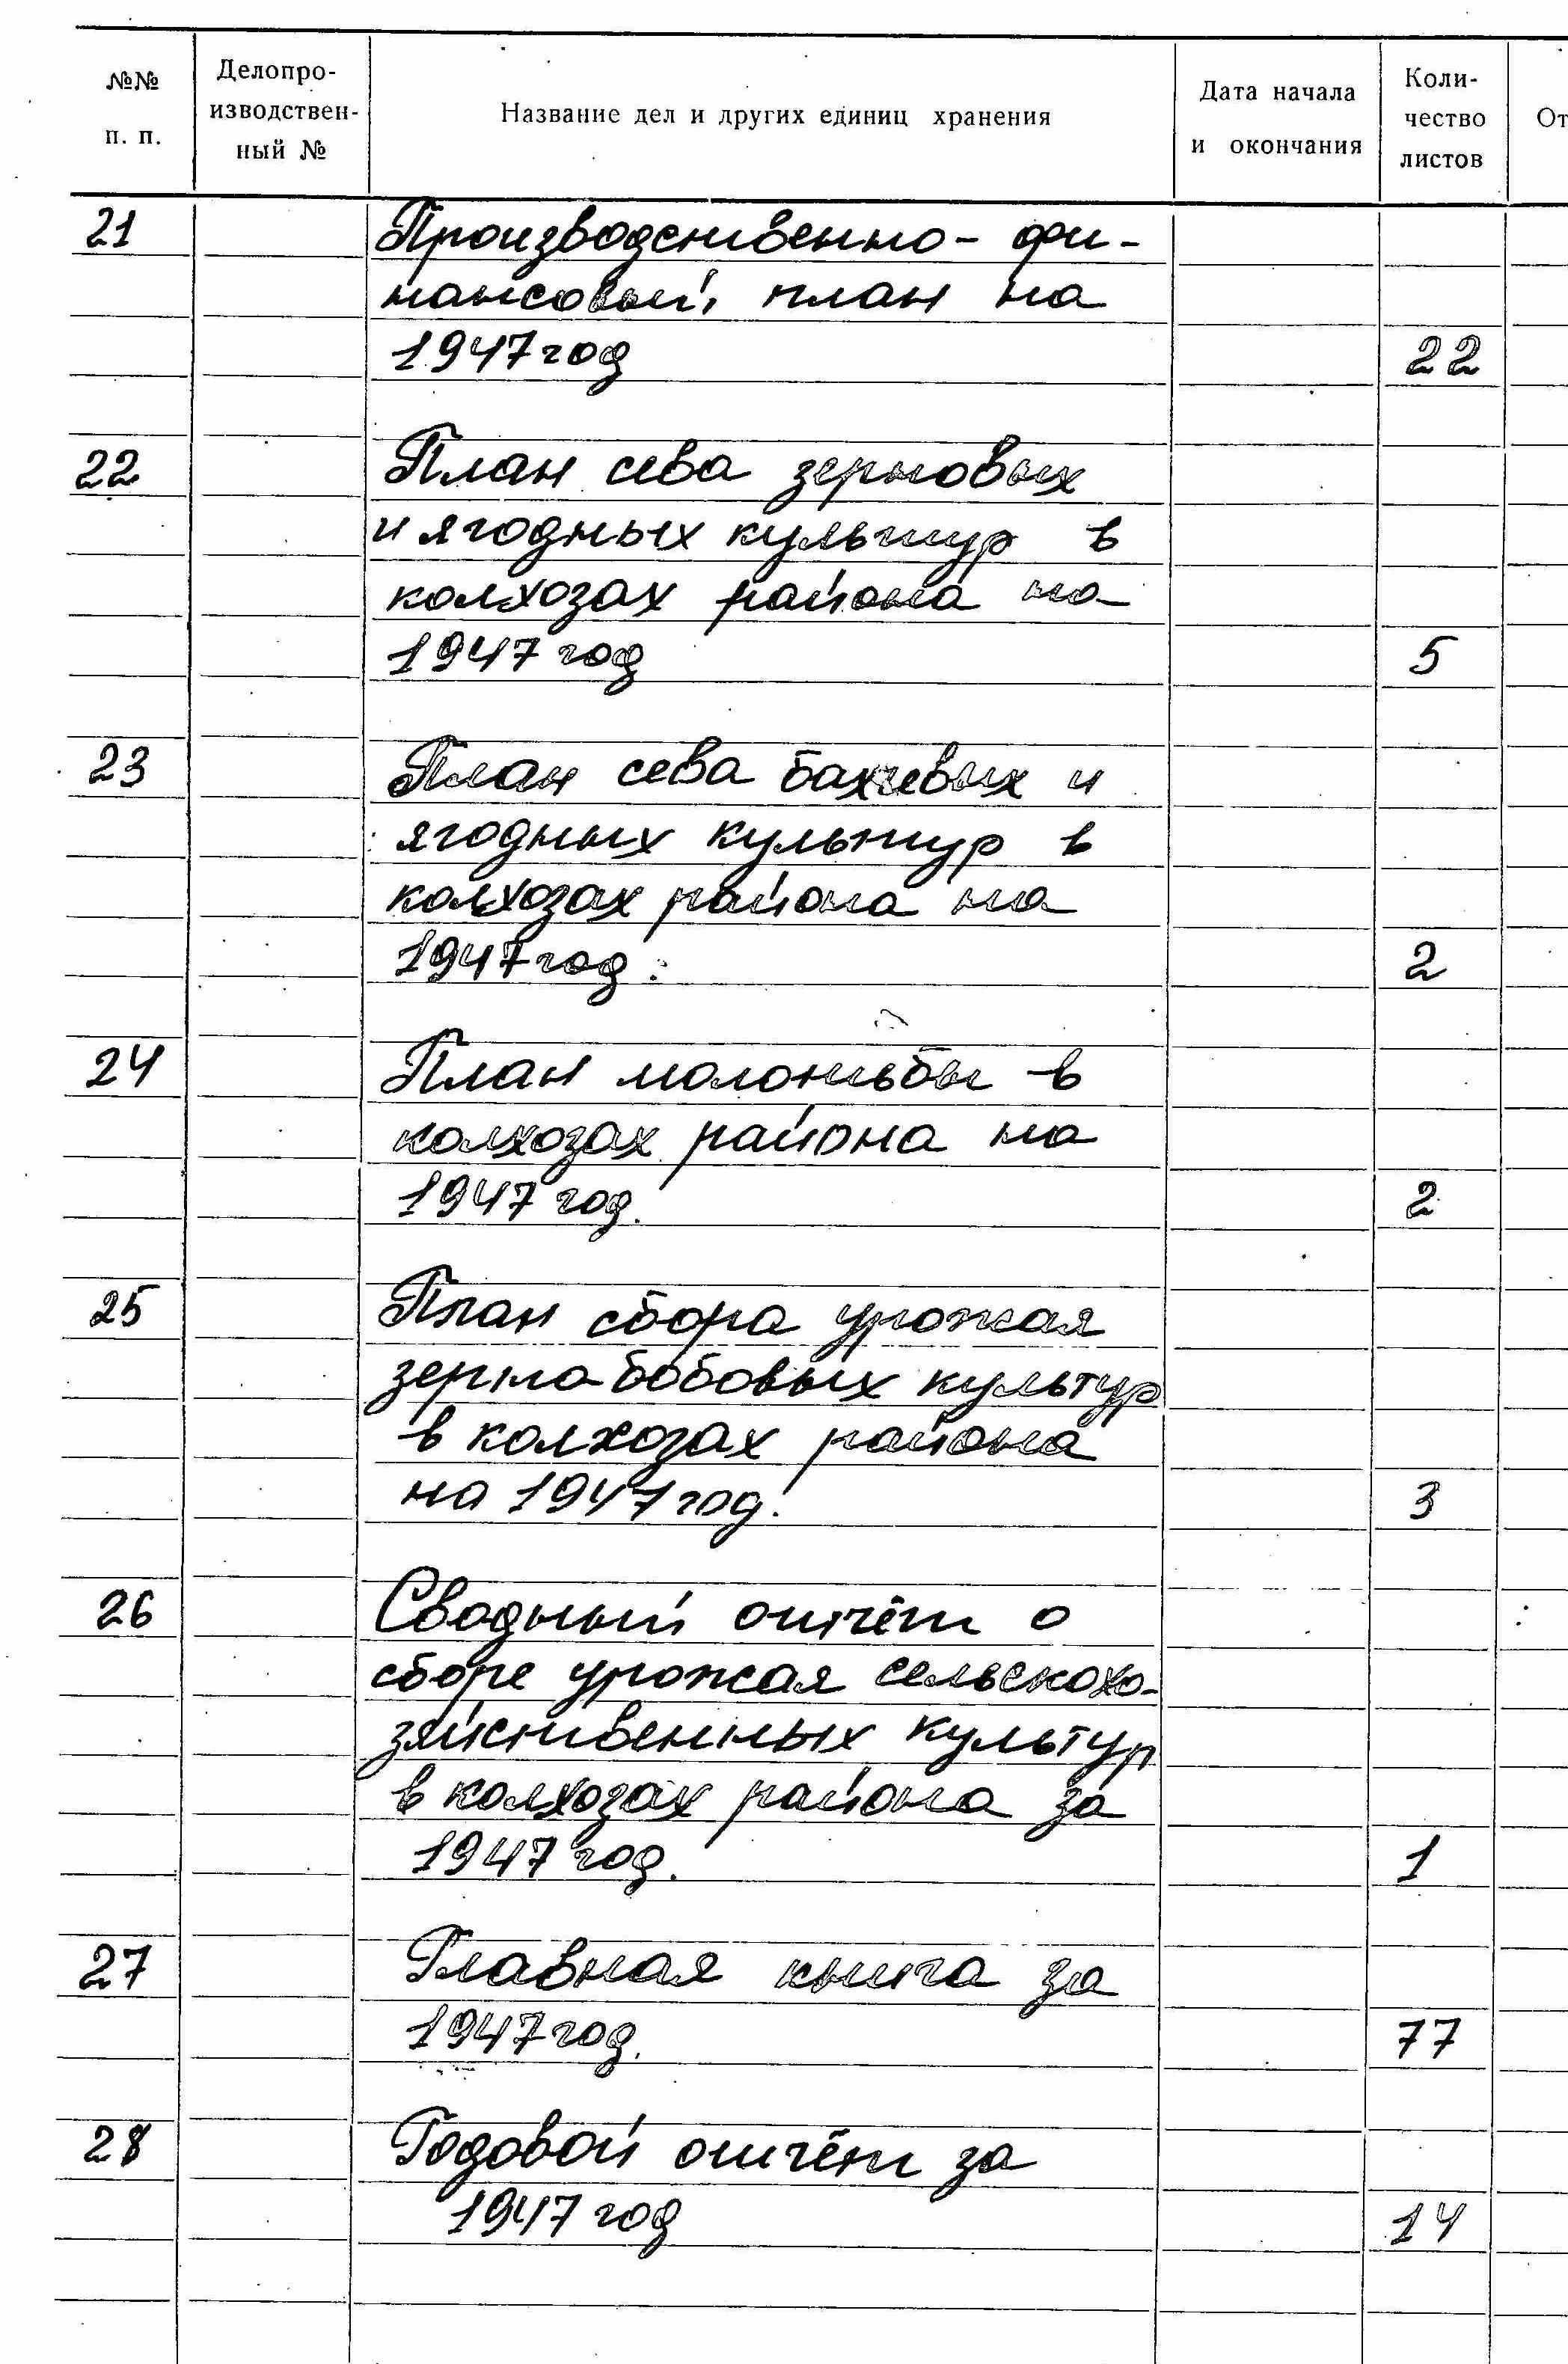 №№ п. п.
Делопро-
изводствен-
ный №
Название дел и других единиц хранения
Дата начала
и окончания
Коли-
чество
листов
От
21 Производственно-фи-
нансовый план на
1947 год 22
22 План сева зерновых
и ягодных культур в
колхозах района на
1947 год 5
23 План сева бахчевых и
ягодных культур в
колхозах района на
1947 год. 2
24 План молотьбы в
колхозах района на
1947 год. 2
25 План сбора урожая
зерно-бобовых культур
в колхозах района
на 1947 год. 3
26 Сводный отчёт о
сборе урожая сельскохо-
зяйственных культур
в колхозах района за
1947 год. 1
27 Главная книга за
1947 год. 77
28 Годовой отчёт за
1947 год 14